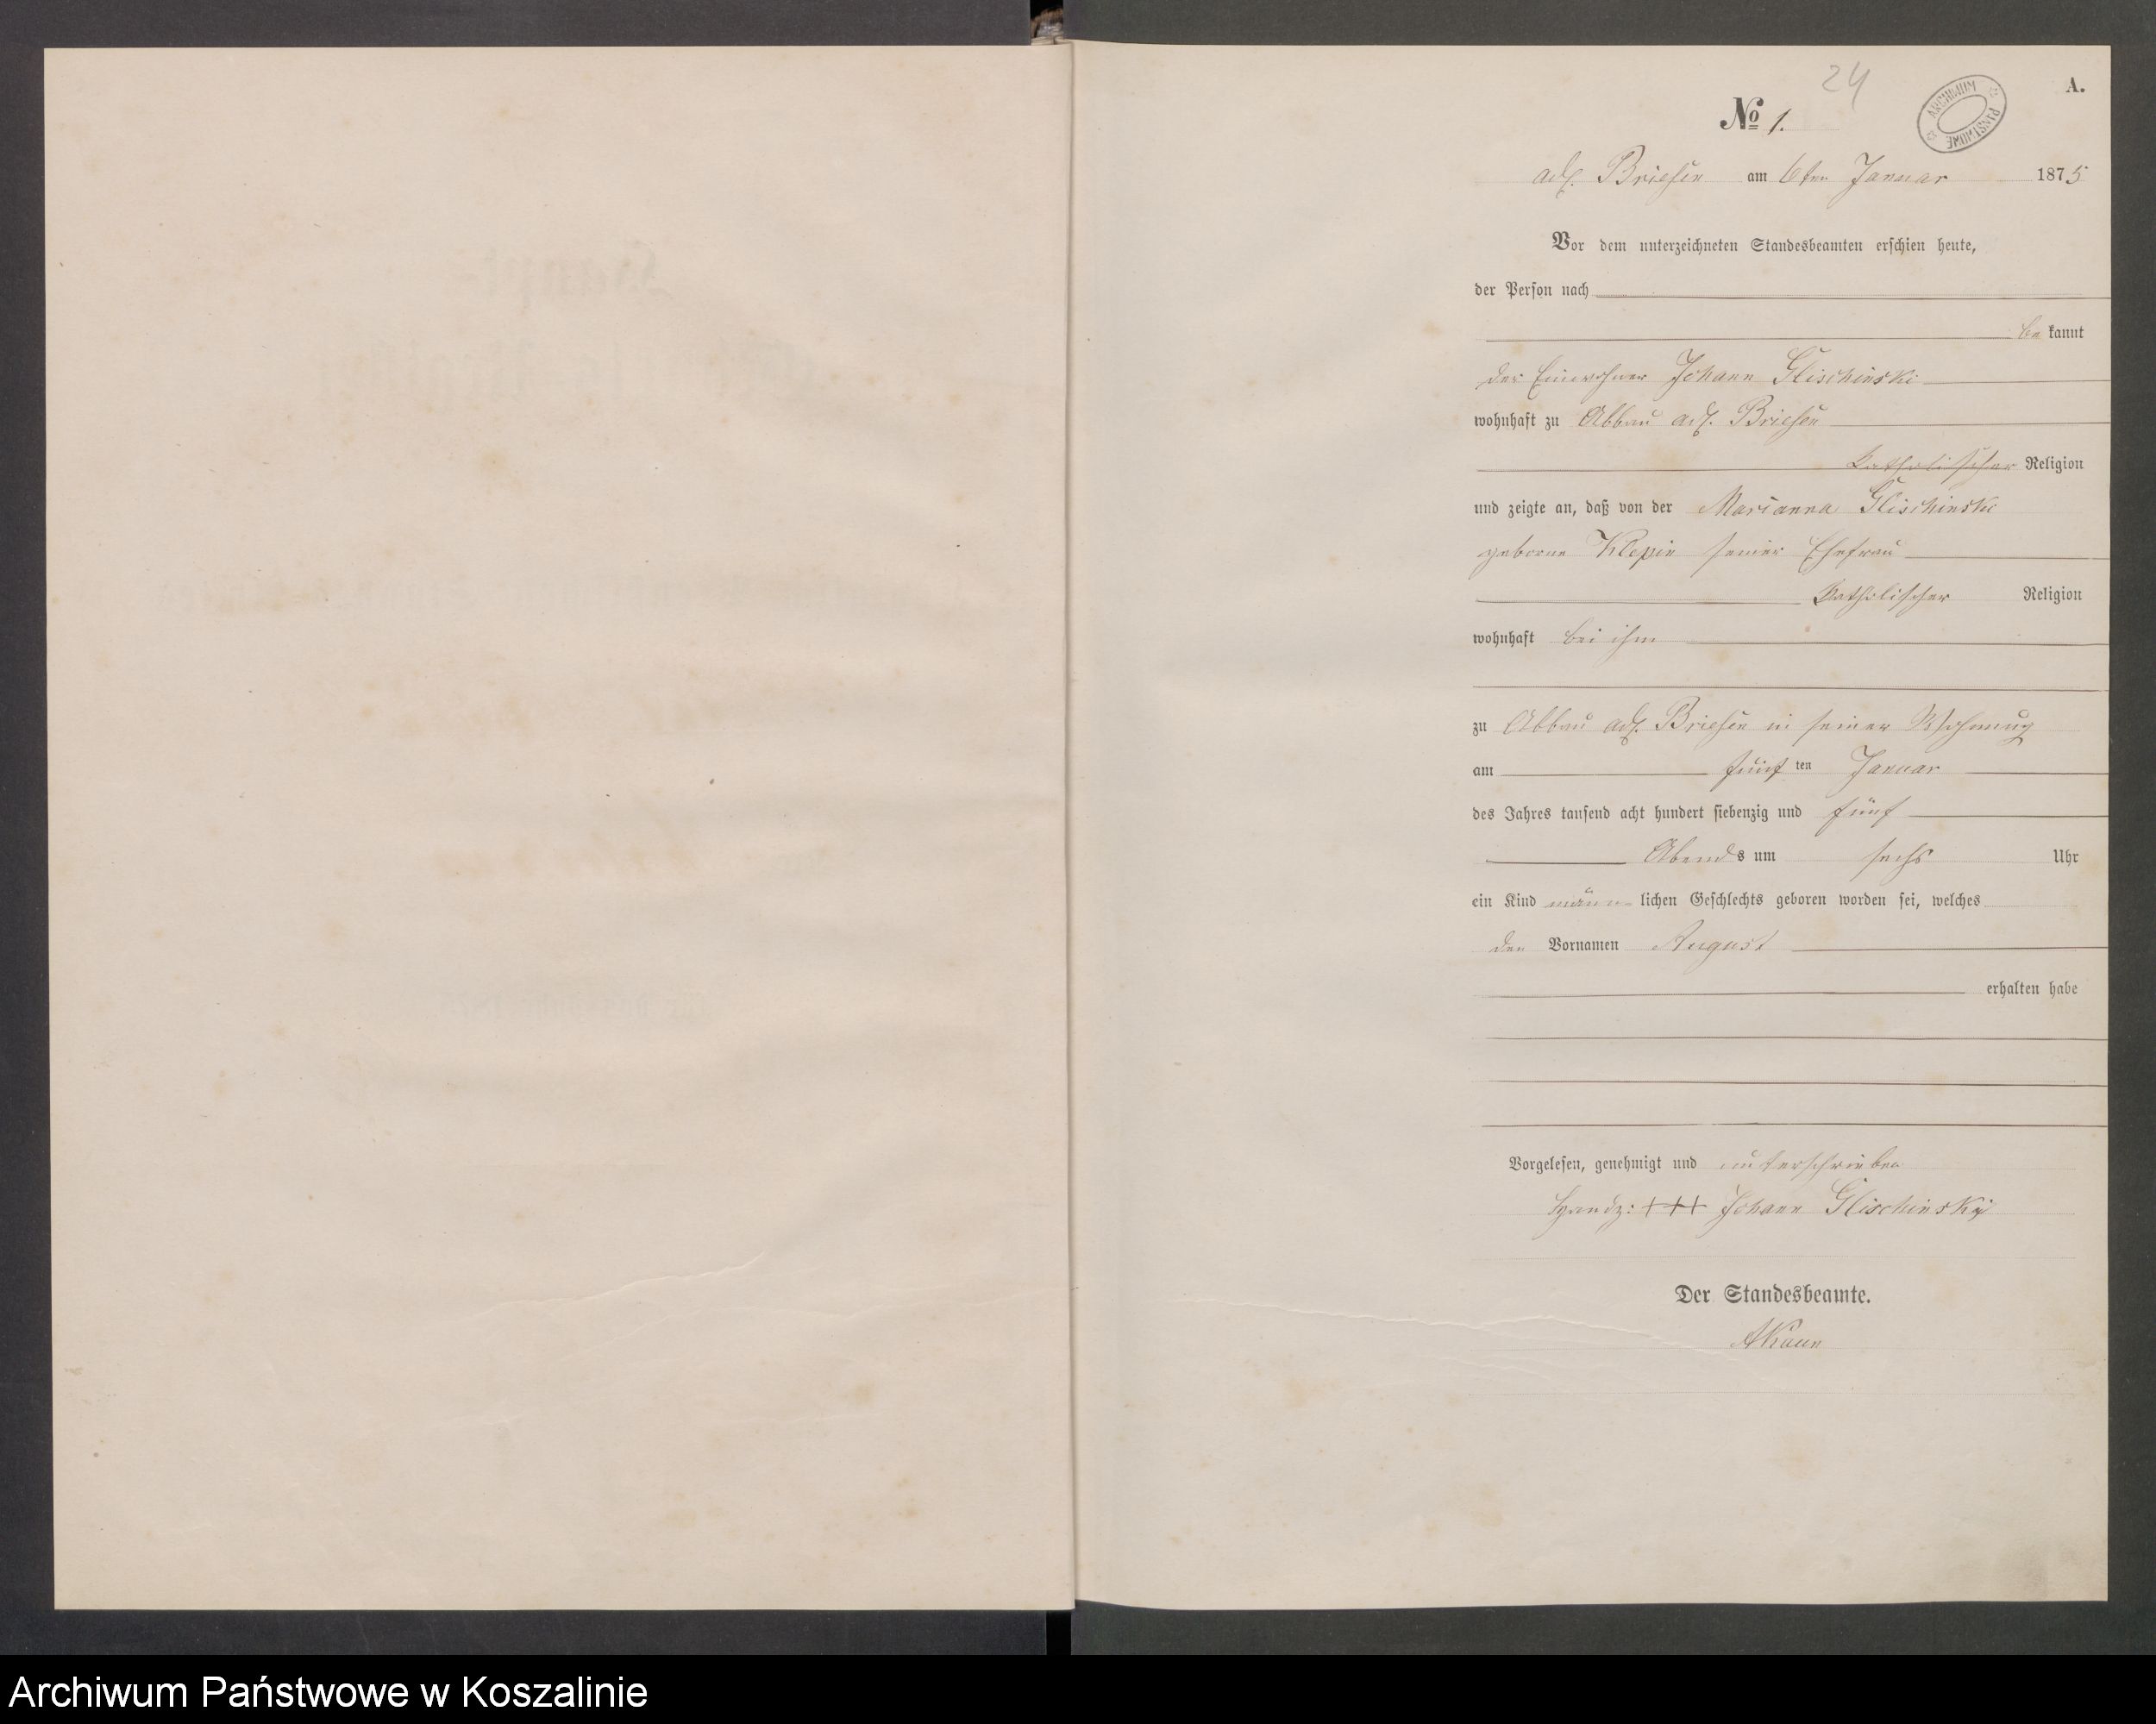 24
A.
ARCHIWUM PAŃSTWOWE
No 1.
adl. Briesen am 6ten Januar 1875
Vor dem unterzeichneten Standesbeamten erschien heute,
der Person nach
be kannt
der Einwohner Johann Glischinski
wohnhaft zu Abbau adl. Briesen
katholischer Religion
und zeigte an, daß von der Marianna Glischinski
geborne Klepin seiner Ehefrau
katholischer Religion
wohnhaft bei ihm
zu Abbau adl. Briesen in seiner Wohnung
am fünf ten Januar
des Jahres tausend acht hundert siebenzig und fünf
Abends um sechs Uhr
ein Kind männ- lichen Geschlechts geboren worden sei, welches
den Vornamen August
erhalten habe
Vorgelesen, genehmigt und unterschrieben
Handz: +++ Johann Glischinski
Der Standesbeamte.
Archiwum Państwowe w Koszalinie